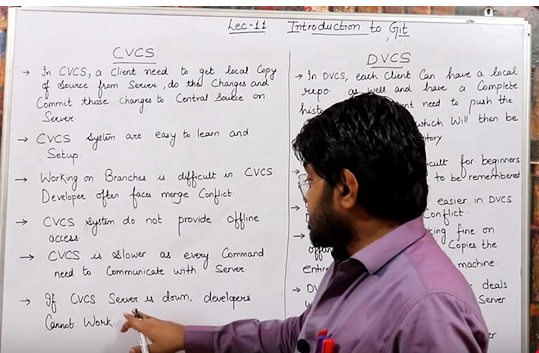 Lec-11 Introduction to Git
CVCS
→ In CVCS, a client need to get local Copy
of Source from Server, do the Changes and
Commit those changes to Central Source on
Server
→ CVCS System are easy to learn and
Setup.
→ Working on Branches is difficult in CVCS.
Developer often faces merge Conflict.
→ CVCS System do not provide offline
access.
→ CVCS is slower as every Command
need to Communicate with Server
→ If CVCS Server is down, developers
Cannot Work.
DVCS
→ In DVCS, each Client Can have a local
repo as well and have a Complete
need to push the
which Will then be
for beginners
to be remembered
easier in DVCS
Conflict.
fine on
Copies the
machine.
deals
Server